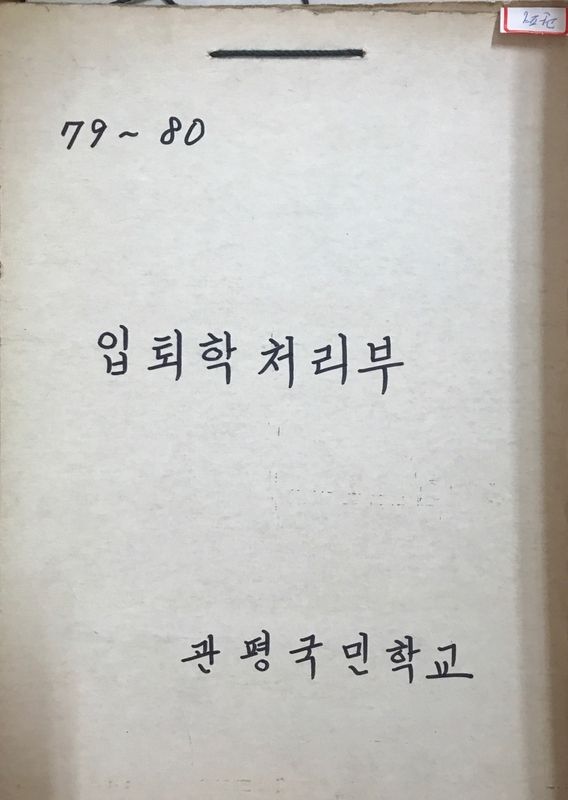 79~80
입퇴학 처리부
관평국민학교